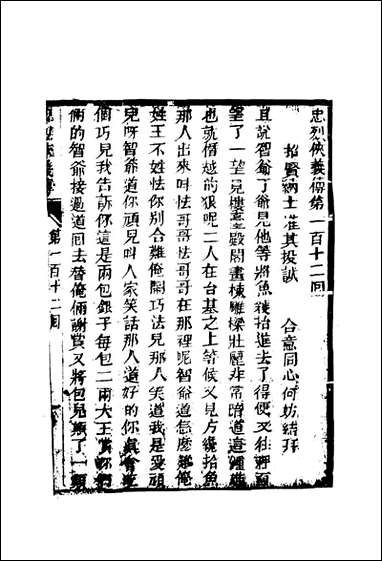 忠烈俠義傳第一百十二回
招賢納士准其投誠　合意同心何妨結拜
且說智爺丁爺見他等將魚簍抬進去了得便又往裡面
望了一望見樓臺殿閣畫棟雕梁壯麗非常暗道這鍾雄
也就僭越的狠呢二人在台基之上等候又見方纔抬魚
那人出來叫怯哥哥怯哥哥在那裡呢智爺道怎麽難俺
姓王不姓怯你別合難俺鬧巧法兒那人笑道我是愛頑
兒呀智爺道你頑兒叫人家笑話那人道好的你真會
個巧兒我告訴你這是兩包銀子每包二兩大王賞你們
倆的智爺接過道回去替俺倆謝賞又將包兒顛了一顛
第一百十二回